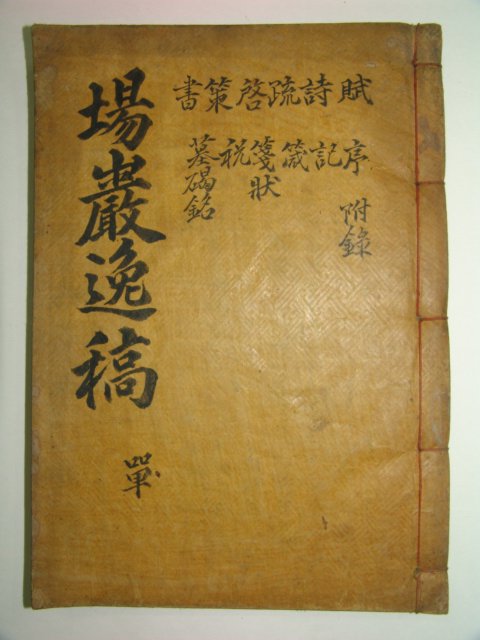 場巖逸稿
單
賦 詩 疏 啓 策 書
序 記 箴 箋狀 祝 墓碣銘
附錄